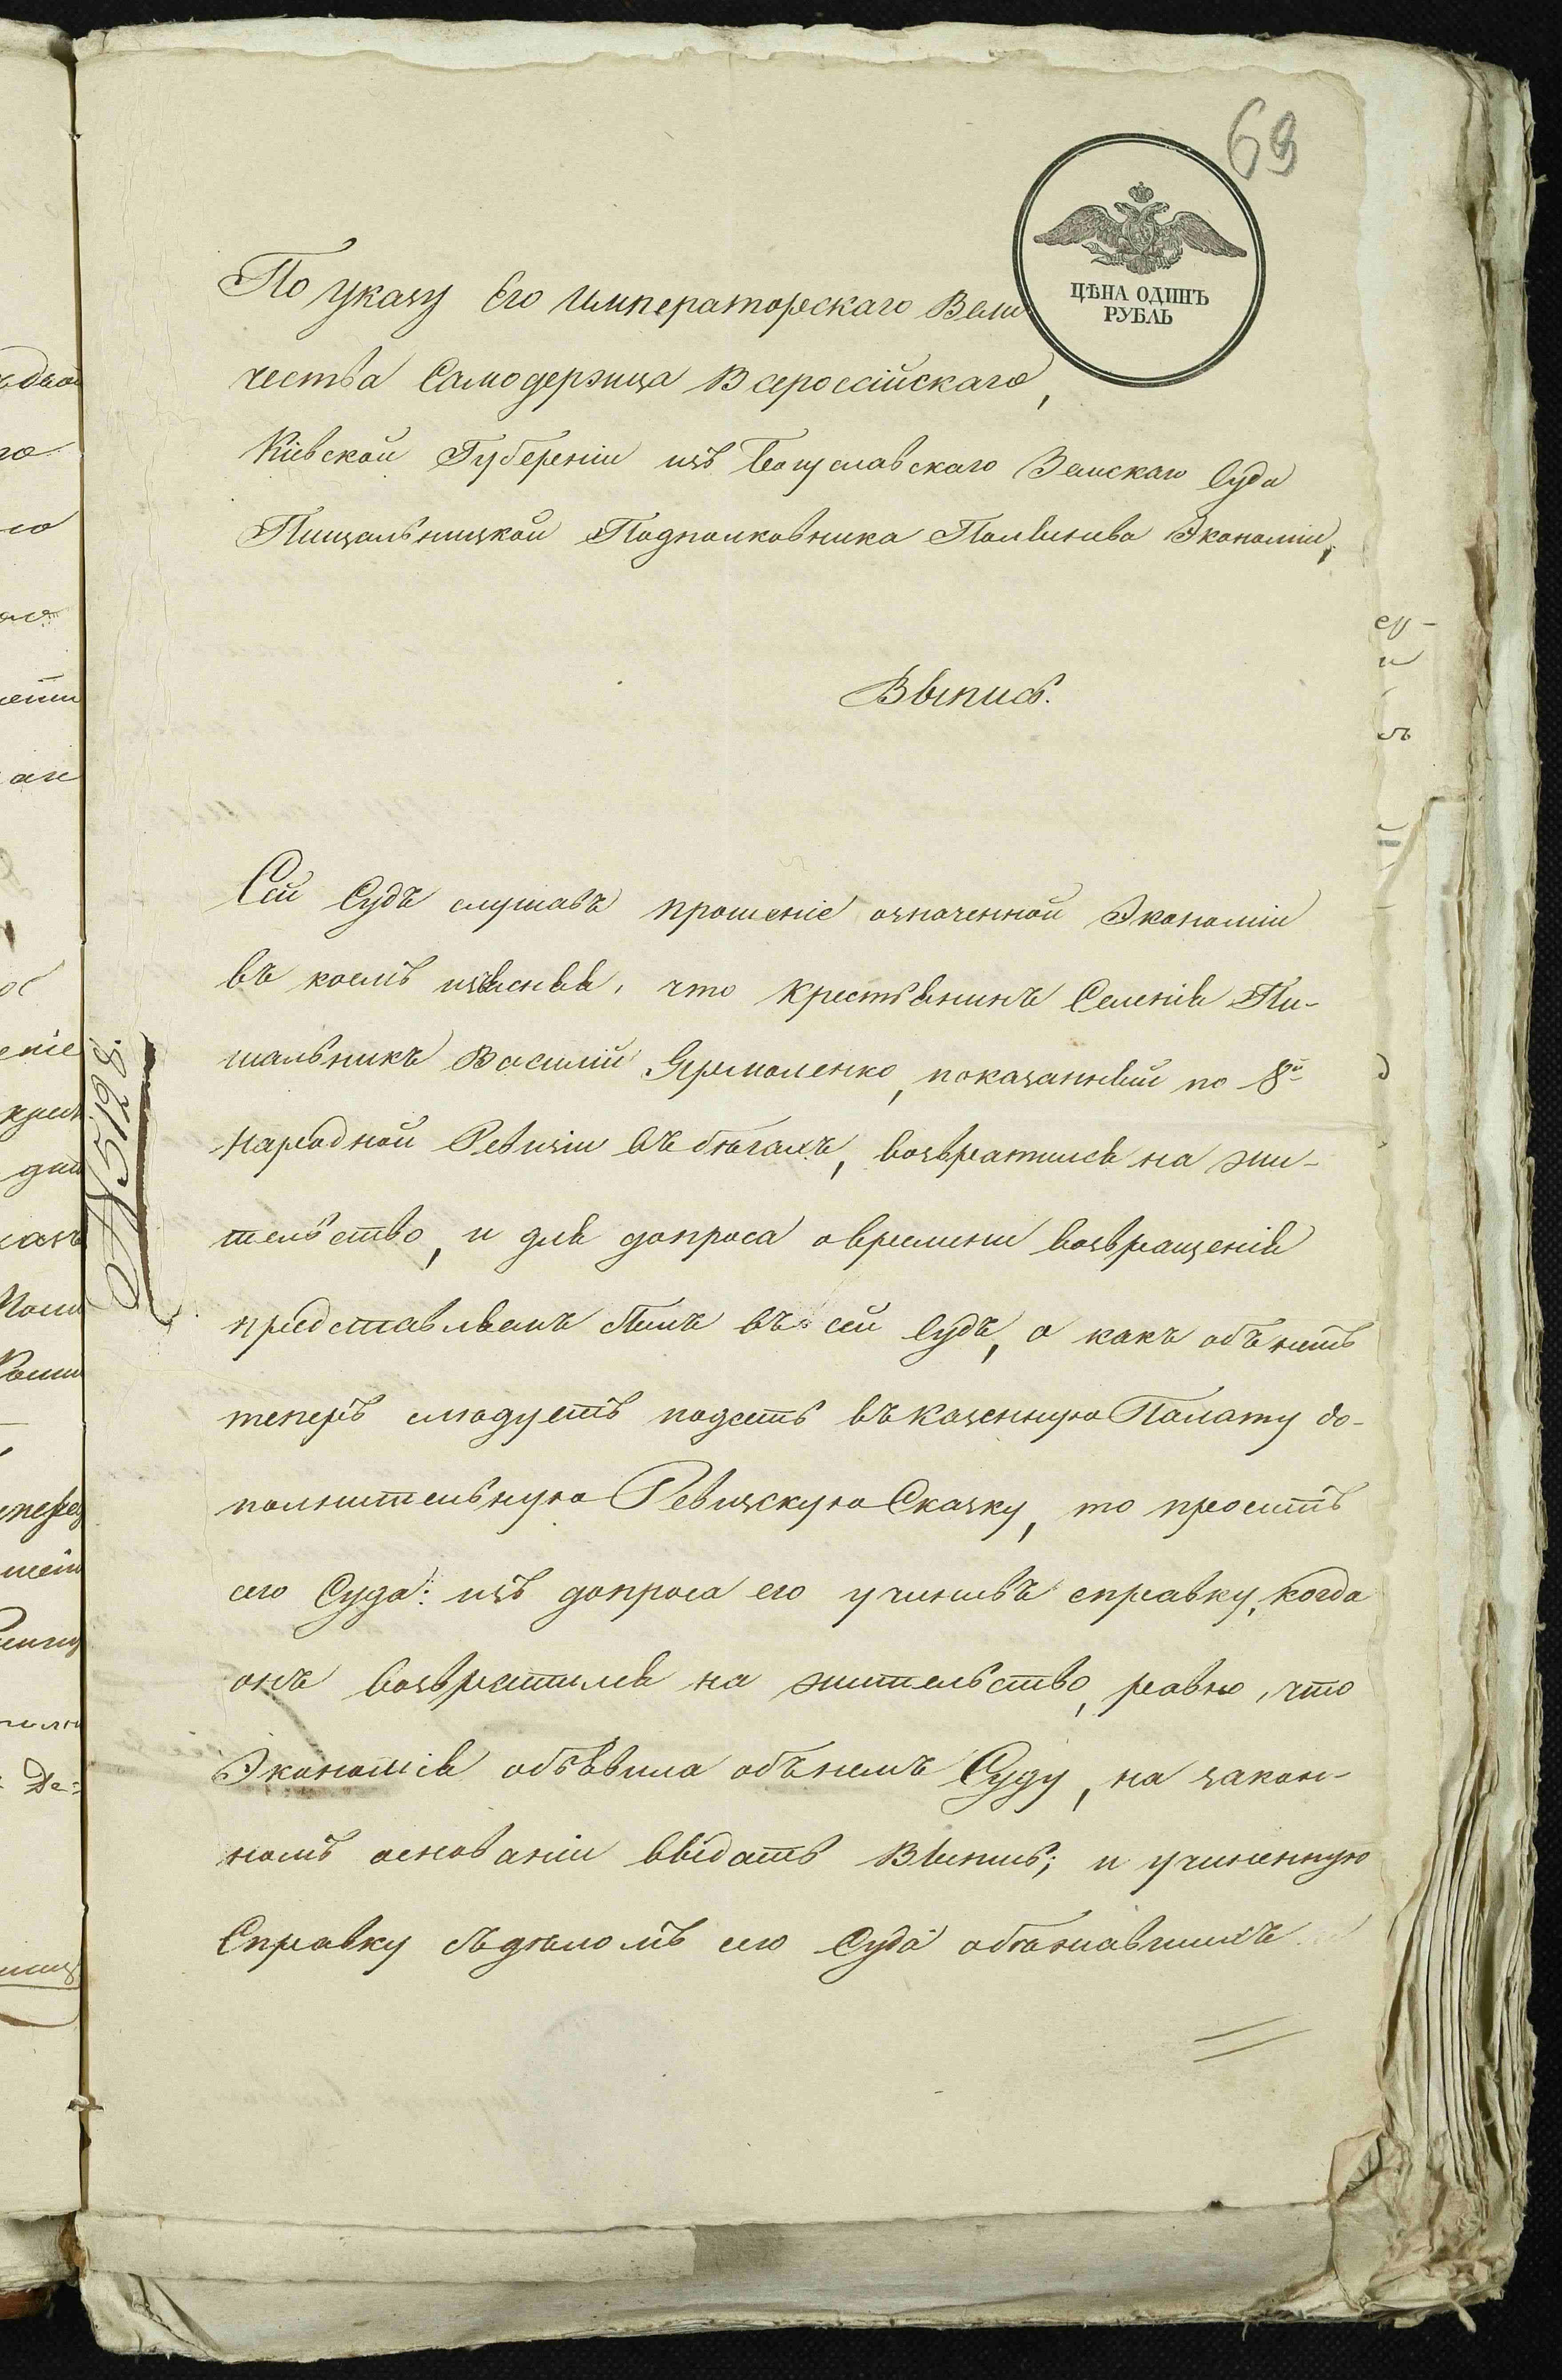 69
ЦѢНА ОДИНЪ
РУБЛЬ
По указу Его Императорскаго Вели
чества Самодержца Всероссійскаго,
Кіевской Губерніи изъ Богуславскаго Земскаго Суда
Пищальницкой Подполковника Экономіи,
Выпись.
Сей Судъ слушавъ прошеніе означенной Экономіи
въ коемъ изъясняя, что Крестьянинъ Селенія Пи-
шальникъ Василій Ярмоленко, показанный по 8й
Народной Ревизіи въ бѣгахъ, возвратился на жи-
тельство, и для допроса о времени возвращенія
представляемъ былъ въ сей Судъ, а какъ объ немъ
теперь слюдуетъ подать въ Казенную Палату до-
полнительную Ревизскую Сказку, то проситъ
сего Суда: изъ допроса его учинивъ справку, когда
онъ возвратился на жительство, равно, что
Экономія объявила объ немъ Суду, на закон-
номъ основаніи выдать Выпись; и учиненную
Справку съ дѣломъ сего Суда
№ 5128.